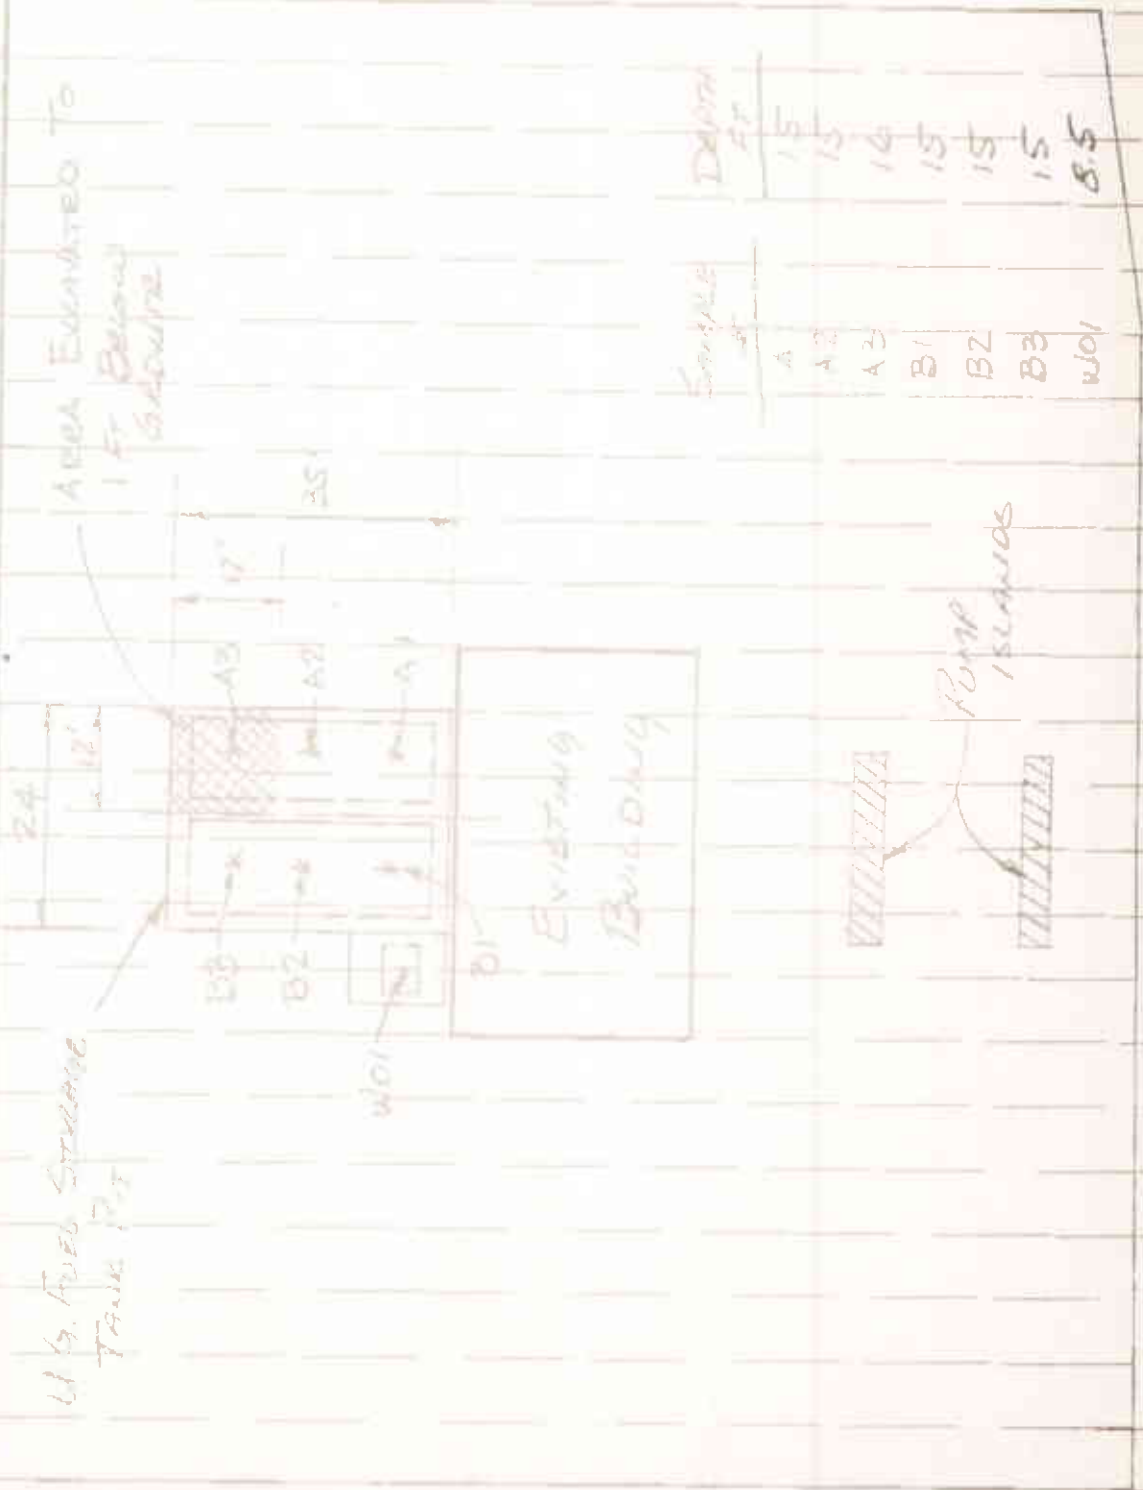 24'
12'
U.G. FUEL STORAGE
TANK PIT
AREA EXCAVATED TO
1 FT BELOW
B3
B2
A3
A2
A1
17'
35'
WO1
B1
EXISTING
BUILDING
PUMP
ISLANDS
SAMPLE DEPTH
# FT
A 15
A2 15
A3 16
B1 15
B2 15
B3 15
WO1 8.5